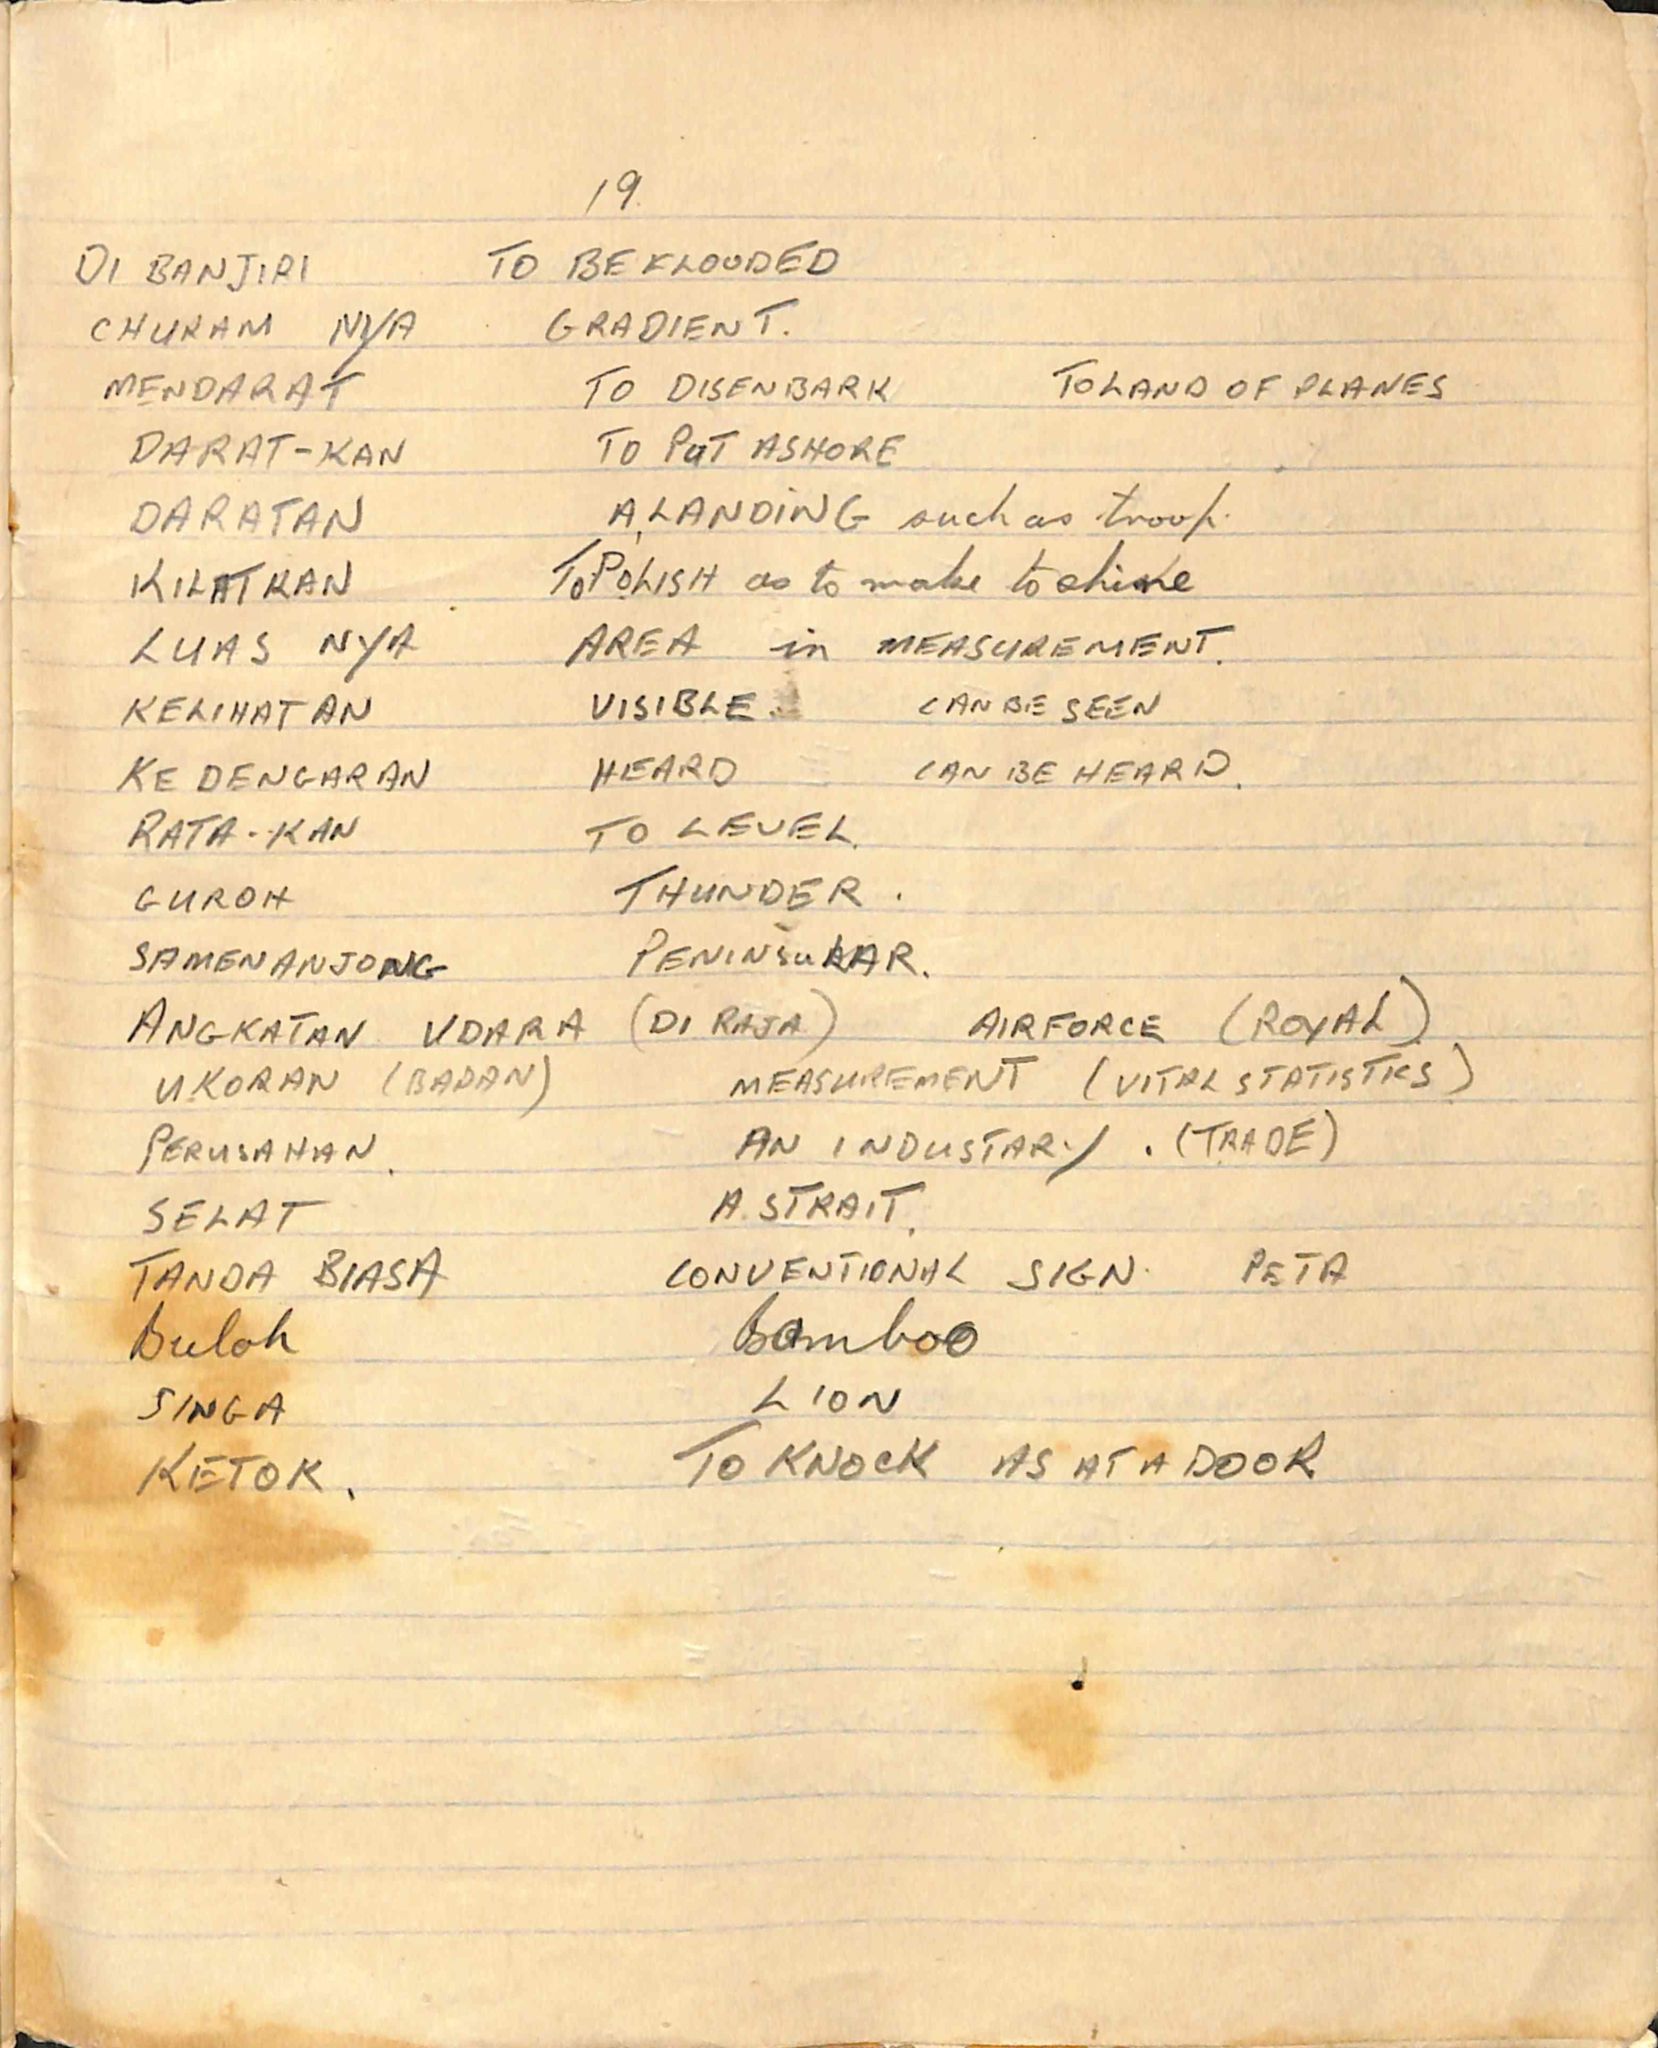 19.
DI BANJIRI TO BE FLOODED
CHURAM NYA GRADIENT.
MENDARAT TO DISENBARK TO LAND OF PLANES
DARAT-KAN TO PUT ASHORE
DARATAN A LANDING such as troop.
KILATKAN TO POLISH as to make to shine
LUAS NYA AREA in MEASUREMENT.
KELIHATAN VISIBLE. CAN BE SEEN
KE DENGARAN HEARD CAN BE HEARD.
RATA-KAN TO LEVEL.
GUROH THUNDER.
SAMENANJONG PENINSULAR.
ANGKATAN UDARA (DI RAJA) AIRFORCE (ROYAL)
UKORAN (BADAN) MEASUREMENT (VITAL STATISTICS)
PERUSAHAN. AN INDUSTARY. (TRADE)
SELAT A STRAIT.
TANDA BIASA CONVENTIONAL SIGN. PETA
Buloh bamboo
SINGA LION
KETOK. TO KNOCK AS AT A DOOR